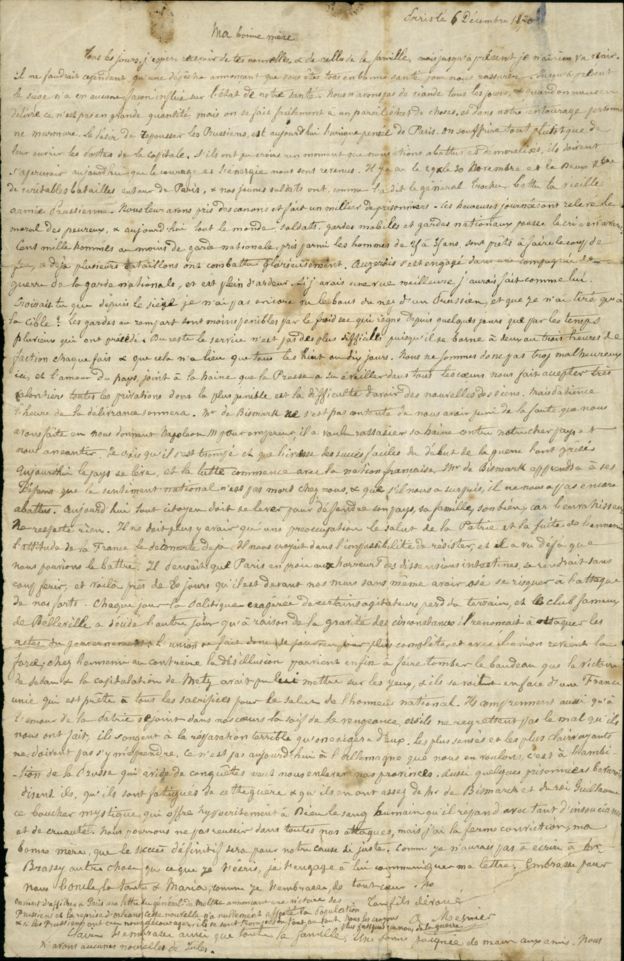 6 Décembre 1870
Ma bonne mère
Tous les jours, j'espère recevoir de tes nouvelles, & de celles de la famille, mais jusqu'à présent je n'ai rien vu venir.
Il ne faudrait cependant qu'une dépêche annonçant que vous êtes tous en bonne santé pour nous rassurer. Jusqu'à présent
le siège n'a en aucune façon influé sur l'état de notre santé. Nous n'avons pas de viande tous les jours, & quand on nous en
délivre ce n'est pas en grande quantité, mais on se fait facilement à un pareil état de choses, et dans notre entourage personne
ne murmure. Le désir de repousser les Prussiens, est aujourd'hui l'unique pensée de Paris. On souffrira tout plutôt que de
leur ouvrir les portes de la capitale. S'ils ont pu croire un moment que nous étions abattus et démoralisés, ils doivent
s'apercevoir aujourd'hui que le courage et l'énergie nous sont revenus. Il y a eu le 29 & le 30 Novembre et le Deux
de véritables batailles autour de Paris, & nos jeunes soldats ont, comme l'a dit le général Trochu, battu la vieille
armée Prussienne. Nous leur avons pris des canons et fait un millier de prisonniers. Ces heureuses journées ont relevé le
moral des peureux, & aujourd'hui tout le monde, soldats, gardes mobiles et gardes nationaux pousse le cri en avant.
Cent mille hommes au moins de garde nationale, pris parmi les hommes de 25 à 35 ans, sont prêts à faire le coup de
feu, & déjà plusieurs bataillons ont combattu glorieusement. s'est engagé dans une compagnie de
guerre de la garde nationale, et est plein d'ardeur. Si j'avais une vue meilleure j'aurais fait comme lui.
Croirais-tu que depuis le siège je n'ai pas encore vu le bout du nez d'un Prussien, et que je n'ai tiré qu'à
la cible? Les gardes au rempart sont moins pénibles par le froid sec qui règne depuis quelques jours que par les temps
pluvieux qui ont précédé. Du reste le service n'est pas des plus difficile puisqu'il se borne à deux ou trois heures de
faction chaque fois & que cela n'a lieu que tous les huit ou dix jours. Nous ne sommes donc pas trop malheureux
ici, et l'amour du pays, joint à la haine que la Prusse a su éveiller dans tous les cœurs nous fait accepter très
volontiers toutes les privations dont la plus pénible est la difficulté d'avoir des nouvelles des siens. Mais patience
l'heure de la délivrance sonnera. Mr de Bismark ne s'est pas contenté de nous avoir puni de la faute que nous
avons faite en nous donnant Napoléon III pour empereur, il a voulu rassasier sa haine contre notre cher pays et
nous anéantir. Je crois qu'il s'est trompé et que les succès faciles du début de la guerre l'ont grisé.
Aujourd'hui le pays se lève, et la lutte commence avec la nation française. Mr de Bismark apprendra à ses
dépens que le sentiment national n'est pas mort chez nous, & que s'il nous a surpris, il ne nous a pas encore
abattus. Aujourd'hui tout citoyen doit se lever pour défendre son pays, sa famille, son bien, car l'envahisseur
ne respecte rien. Il ne doit plus y avoir qu'une préoccupation le salut de la Patrie et la fuite de l'ennemi.
L'attitude de la France le déconcerte déjà. Il nous croyait dans l'impossibilité de résister, et il a vu déjà que
nous pouvions le battre. Il pensait que Paris en proie aux horreurs des dissensions intestines, se rendrait sans
coup férir, et voilà près de 80 jours qu'il est devant nos murs sans même avoir osé se risquer à l'attaque
de nos forts. Chaque jour la politique exagérée de certains agitateurs perd du terrain, et le club fameux
de Belleville a décidé l'autre jour qu'à raison de la gravité des circonstances il renonçait à attaquer les
actes du gouvernement. L'union se fait donc de jour en jour plus complète, et avec l'union revient la
force; chez l'ennemi au contraire la désillusion parvient enfin à faire tomber le bandeau que la victoire
de Sedan & la capitulation de Metz avait pu lui mettre sur les yeux, & ils se voient en face d'une France
unie qui est prête à tous les sacrifices pour le salut de l'honneur national. Ils comprennent aussi qu'à
l'amour de la patrie se joint dans nos cœurs la soif de la vengeance, et s'ils ne regrettent pas le mal qu'ils
nous ont fait, ils songent à la réparation terrible qu'on exigera d'eux. Les plus sensés et les plus clairvoyants
ne doivent pas s'y méprendre, ce n'est pas aujourd'hui à l'Allemagne que nous en voulons, c'est à l'ambi-
tion de la Prusse qui avide de conquêtes veut nous enlever nos provinces. Aussi quelques prisonniers bavarois
disent-ils, qu'ils sont fatigués de cette guerre & qu'ils en ont assez de Mr de Bismark et du roi Guillaume
ce boucher mystique, qui offre hypocritement à Dieu le sang humain qu'il répand avec tant d'insouciance
et de cruauté. Nous pouvons ne pas réussir dans toutes nos attaques, mais j'ai la ferme conviction, ma
bonne mère, que le succès définitif sera pour notre cause si juste. Comme je n'aurais pas à écrire à Mr
Brassy autre chose que ce que je t'écris, je t'engage à lui communiquer ma lettre. Embrasse pour
nous l'oncle, la tante & Maria, comme je t'embrasse, de tout cœur.
Ton fils dévoué
Mesnier
On vient d'afficher à Paris une lettre du général de Moltke annonçant une victoire des
Prussiens et la reprise d'Orléans. Cette nouvelle n'a nullement affecté la population
t'embrasse ainsi que toute la famille. Une bonne poignée de main aux amis. Nous
n'avons aucunes nouvelles de Jules.